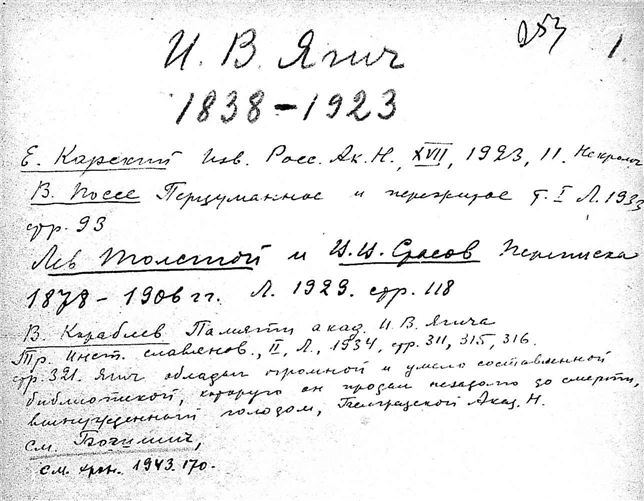 253 1.
И. В. Ягич
1838–1923
Е. Карский Изв. Росс. Ак. Н., XVII, 1923, 11. Некролог
В. Поссе Передуманное и пережитое т. I Л. 1933
стр. 93
Лев Толстой и В. В. Стасов Переписка
1878–1906 гг. Л. 1929. стр. 118
В. Кораблев Памяти акад. И. В. Ягича
Тр. Инст. славянов., II, Л., 1934, стр. 311, 315, 316.
стр. 321. Ягич обладал огромной и умело составленной
библиотекой, которую он продал незадолго до смерти,
вынужденный голодом, Белградской Акад. Н.
см. Богишич,
см. хрон. 1943.170.